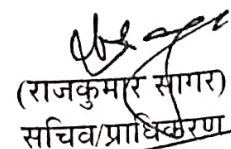 (राजकुमार सागर)
सचिव/प्राधिकरण